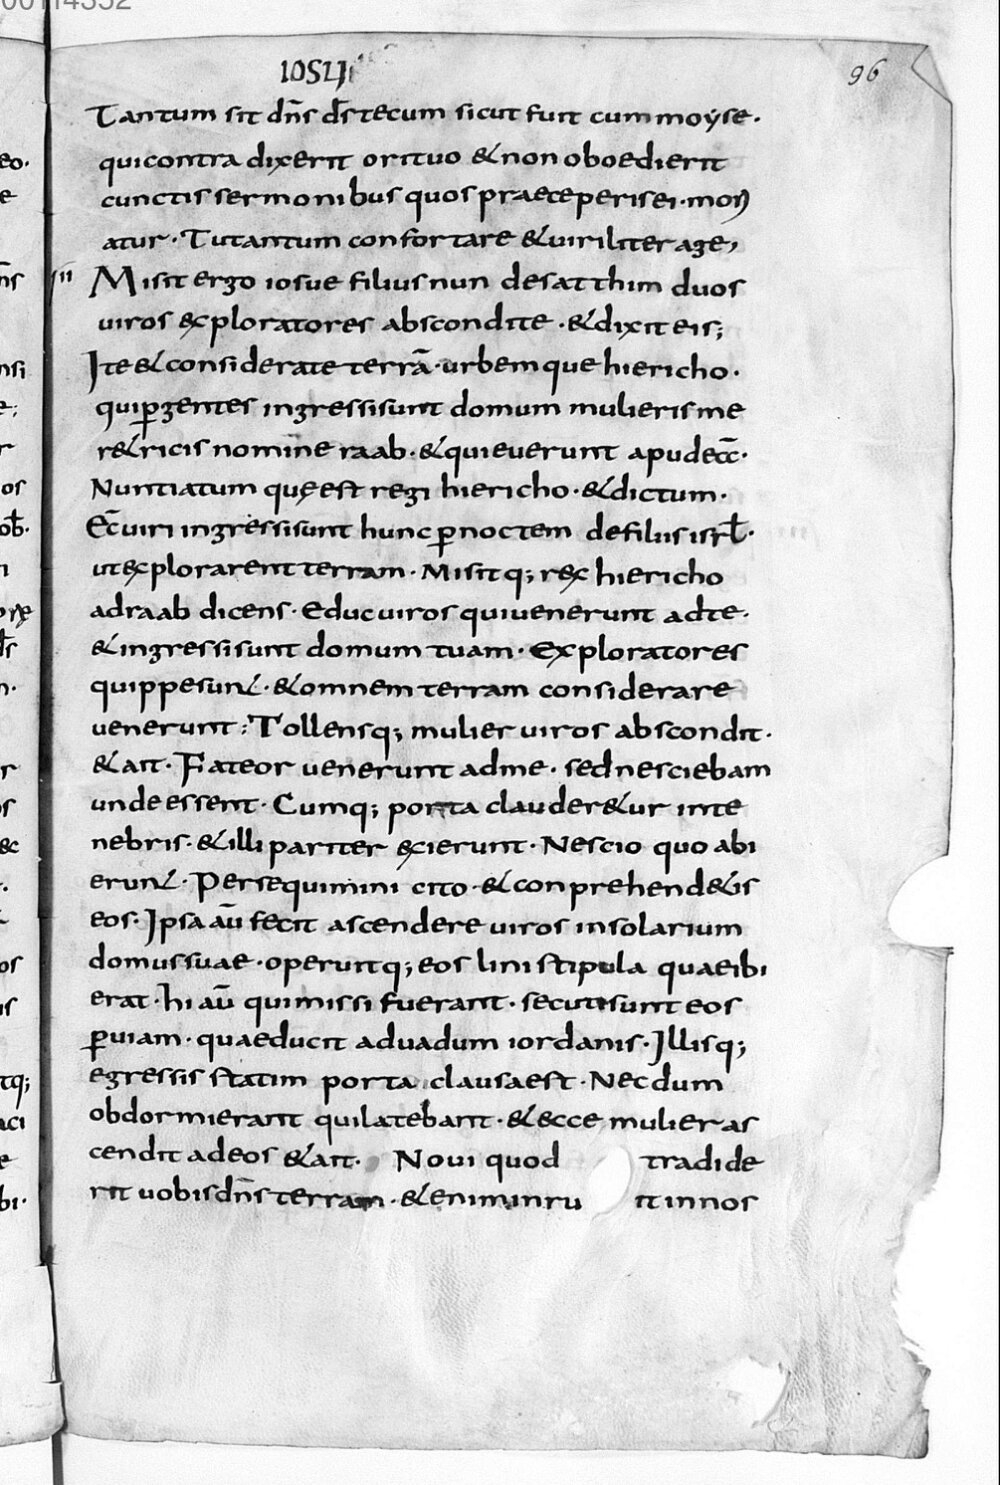 00114352
IOSU
96
Tantum sit dn̄s d̄s tecum sicut fuit cum moẏse·
qui contra dixerit ori tuo & non oboedierit
cunctis sermonibus quos praeceperis ei· mori
atur· Tu tantum confortare & viriliter age;
II Misit ergo iosue filius nun de satthim duos
uiros exploratores abscondite· & dixit eis;
Ite & considerate terrā· urbemque hiericho·
qui ꝑgentes ingressi sunt domum mulieris me
r&ricis nomine raab· & quieuerunt apud eā·
Nuntiatum quę est regi hiericho· & dictum·
Ec̄ uiri ingressi sunt hunc ꝑ noctem de filiis isrl̄·
ut explorarent terram· Misitq; rex hiericho
ad raab dicens· Educ uiros qui uenerunt ad te·
& ingressi sunt domum tuam· Exploratores
quippe sunt· & omnem terram considerare
uenerunt: Tollensq; mulier uiros abscondit·
& ait· Fateor uenerunt ad me· sed nesciebam
unde essent· Cumq; porta clauder&ur in te
nebris· & illi pariter exierunt· Nescio quo abi
erunt· Persequimini cito· & conprehend&is
eos· Ipsa aū fecit ascendere uiros in solarium
domus suae· operuitq; eos lini stipula quae ibi
erat· hi aū qui missi fuerant· secuti sunt eos
ꝑ uiam· quae ducit ad uadum iordanis· Illisq;
egressis statim porta clausa est· Necdum
obdormierant qui latebant· & ecce mulier as
cendit ad eos & ait· Noui quod tradide
rit uobis dn̄s terram· & enim inru it in nos